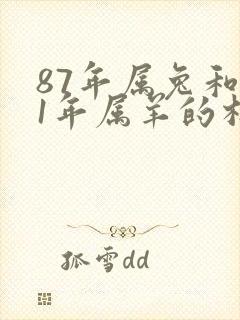 87年属兔和
1年属羊的
孤雪dd